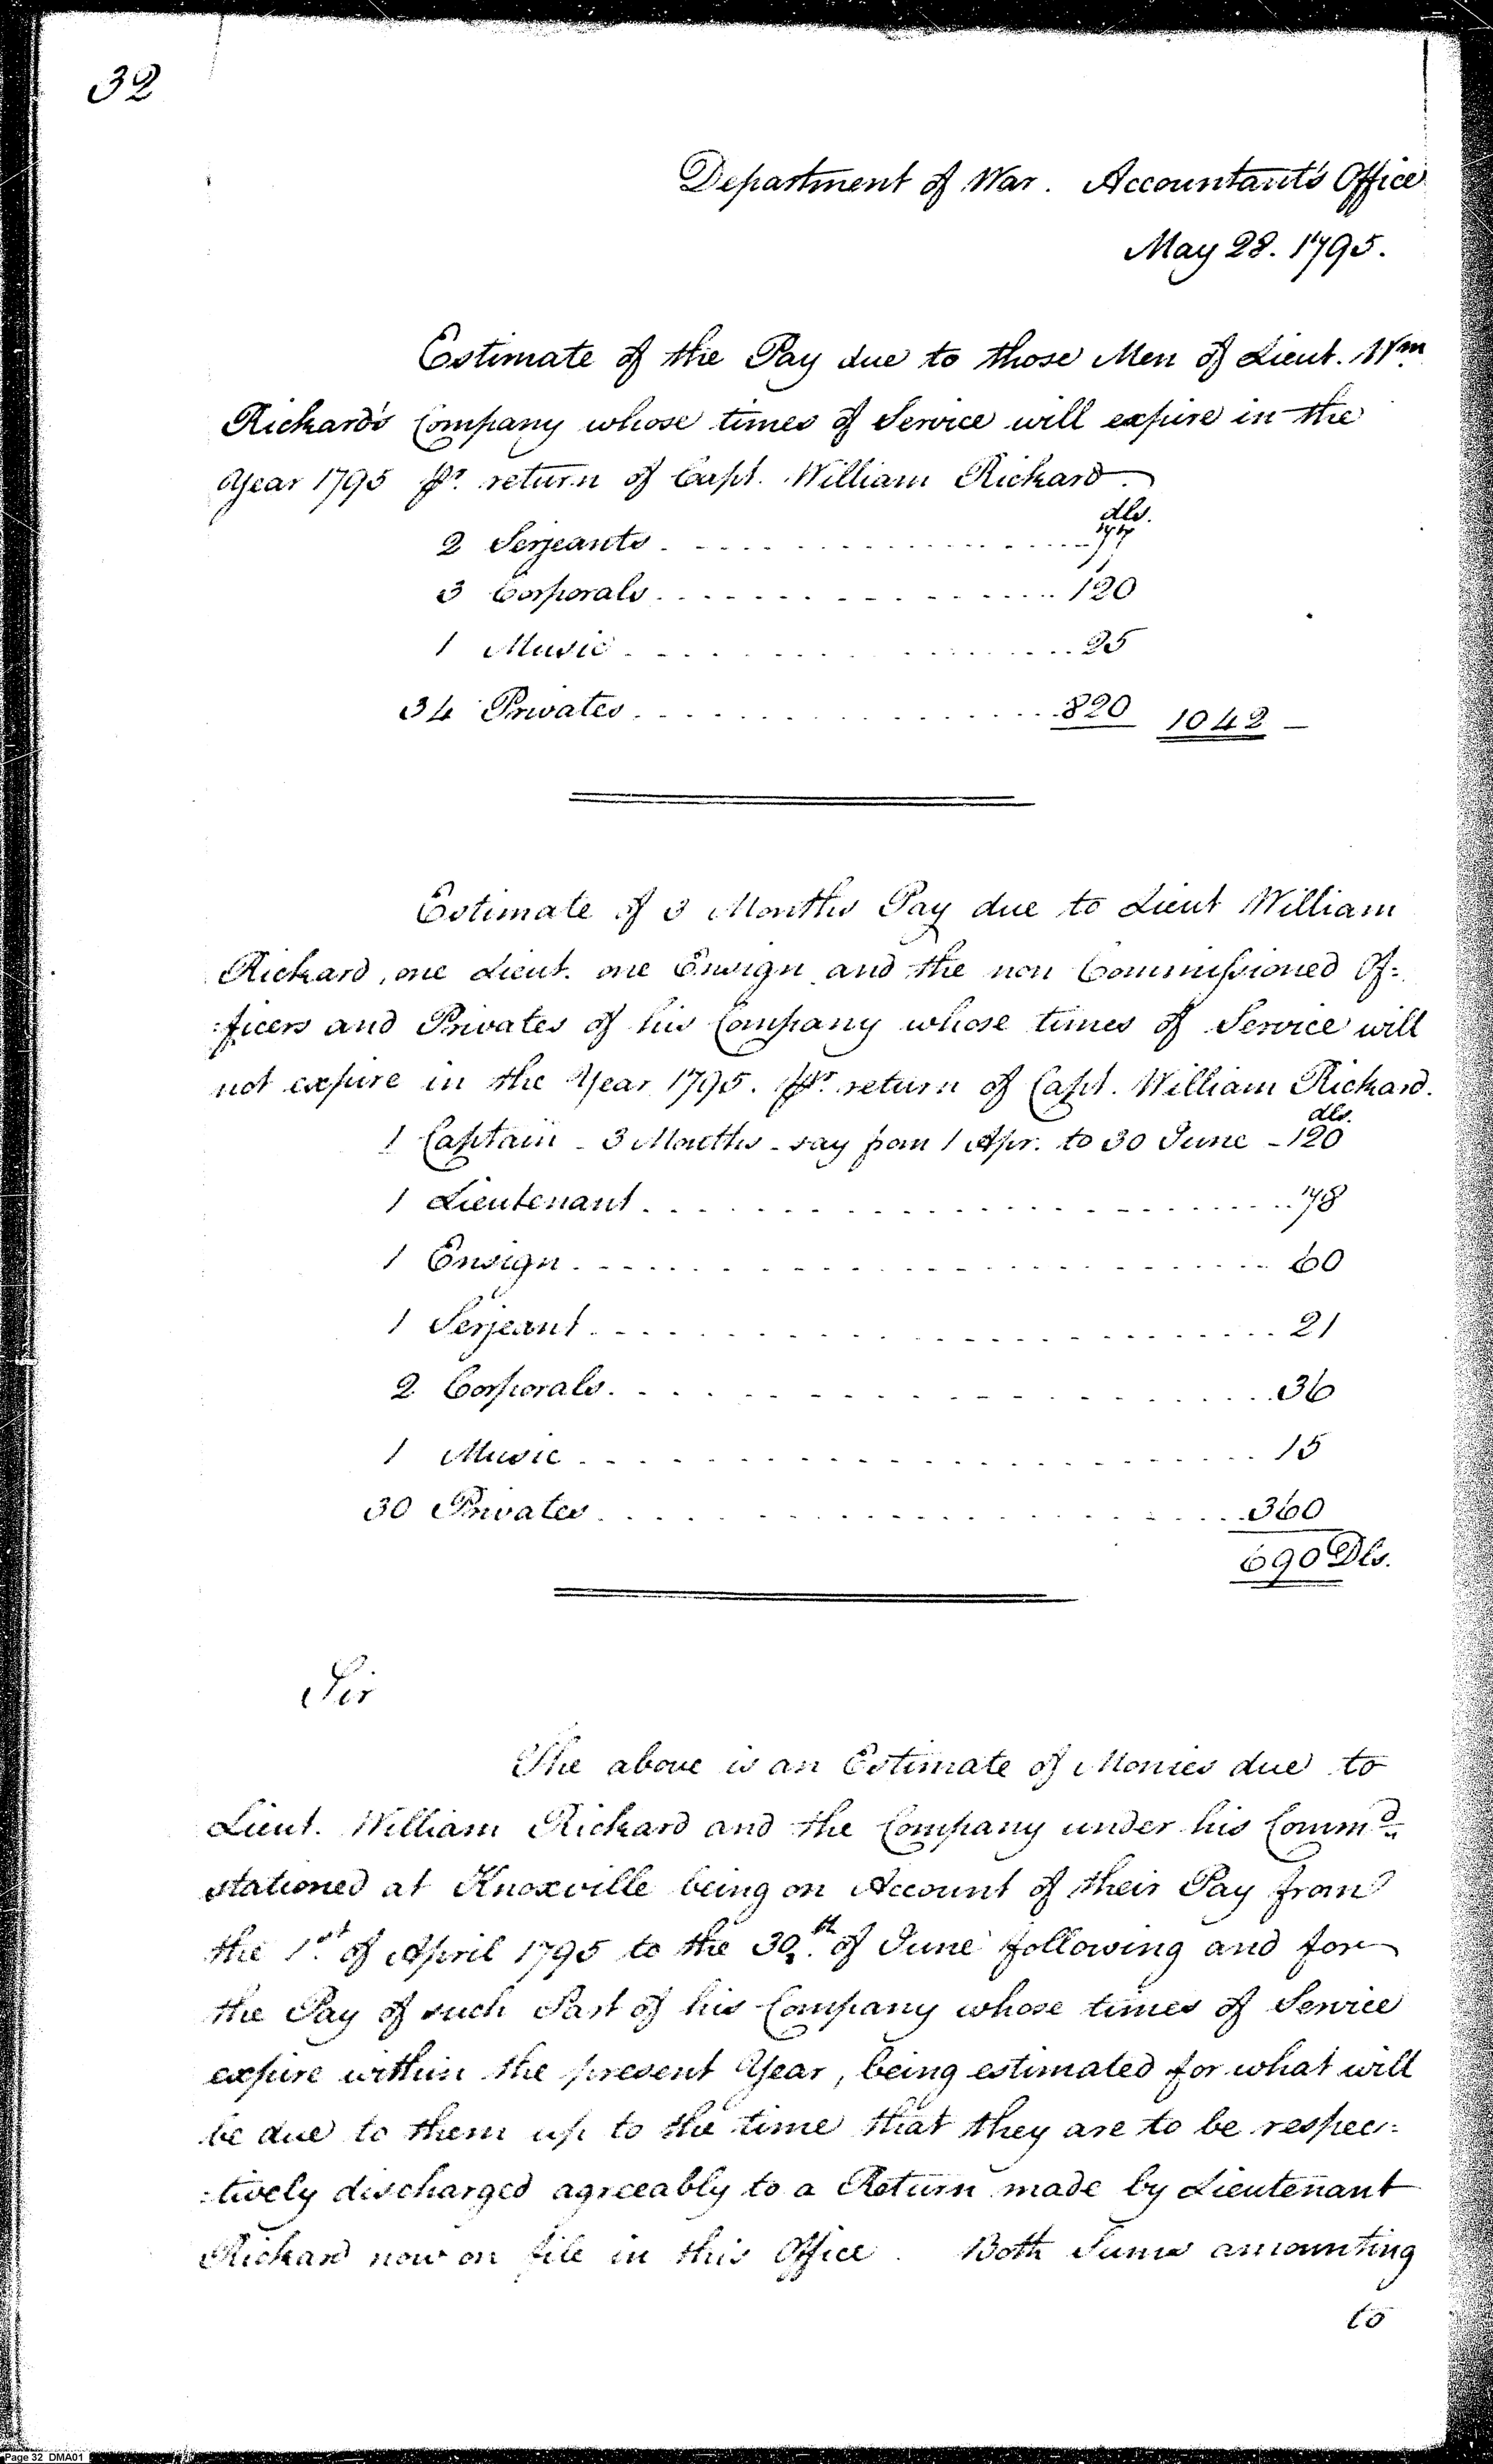 32
Department of War. Accountant's Office
May 28. 1795.
Estimate of the Pay due to those Men of Lieut. Wm.
Rickard's Company whose times of Service will expire in the
Year 1795 pr. return of Capt. William Rickard.
dls.
2 Serjeants. - - - - - - - - - - 77
3 Corporals. - - - - - - - - - - 120
1 Music. - - - - - - - - - - 25
34 Privates. - - - - - - - - - - 820 1042 -
Estimate of 3 Months Pay due to Lieut William
Rickard, one Lieut. one Ensign and the non Commissioned Of=
=ficers and Privates of his Company whose times of Service will
not expire in the Year 1795. pr. return of Capt. William Rickard.
dls.
1 Captain - 3 Months - say from 1 Apr. to 30 June - 120
1 Lieutenant. - - - - - - - - - - 78
1 Ensign. - - - - - - - - - - 60
1 Serjeant. - - - - - - - - - - 21
2 Corporals. - - - - - - - - - - 36
1 Music. - - - - - - - - - - 15
30 Privates. - - - - - - - - - - 360
690 Dls.
Sir
The above is an Estimate of Monies due to
Lieut. William Rickard and the Company under his Commd.
stationed at Knoxville being on Account of their Pay from
the 1st. of April 1795 to the 30th. of June following and for
the Pay of such Part of his Company whose times of Service
expire within the present Year, being estimated for what will
be due to them up to the time that they are to be respec=
=tively discharged agreeably to a Return made by Lieutenant
Rickard now on file in this Office. Both Sums amounting
to
Page 32 DMA01